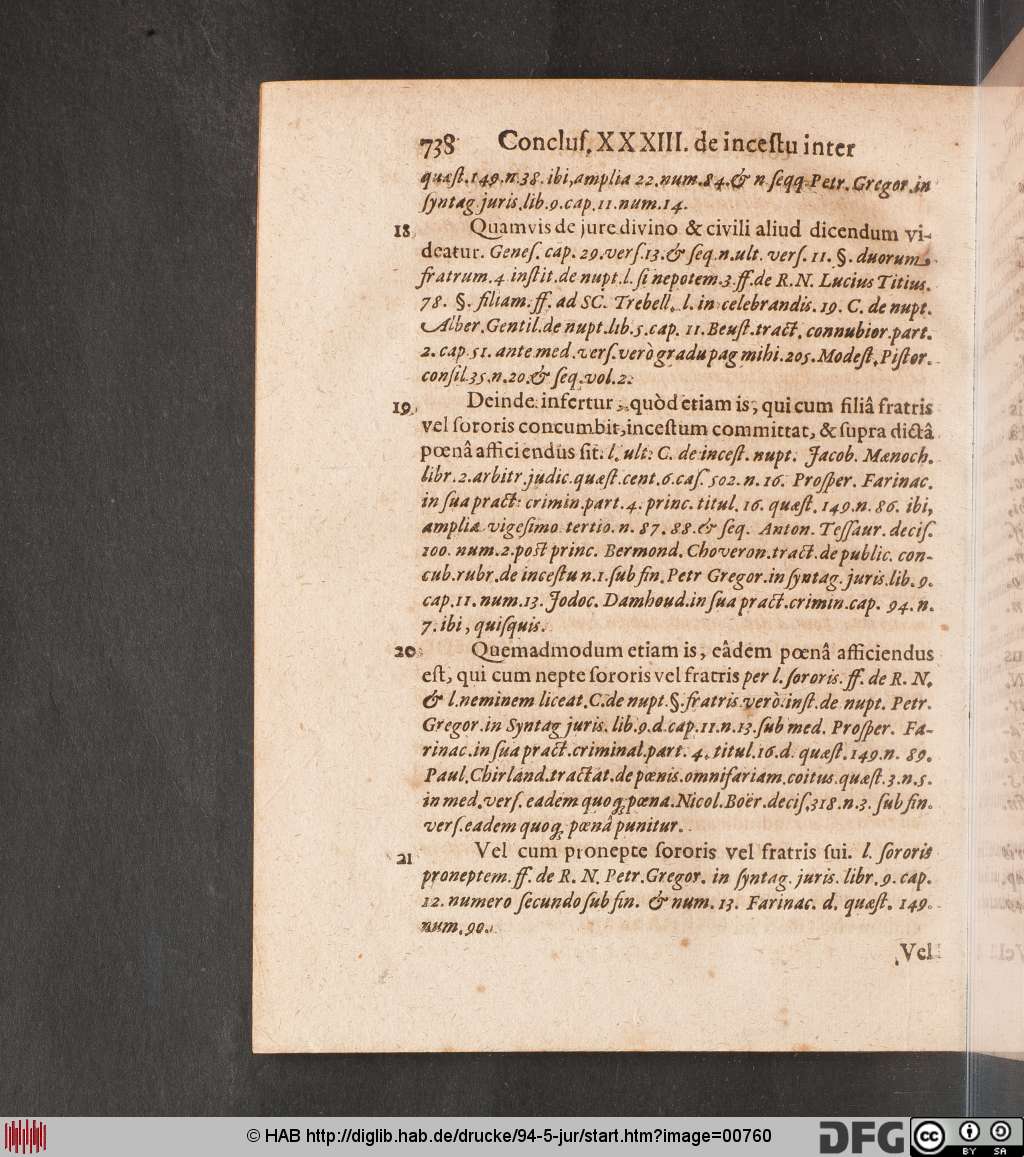 738 Concluſ. XXXIII. de inceſtu inter
quæſt. 149. n. 38. ibi, amplia 22. num. 84. & n ſeqq Petr. Gregor. in
ſyntag juris. lib. 9. cap. 11. num. 14.
18 Quamvis de jure divino & civili aliud dicendum vi-
deatur. Geneſ. cap. 29. verſ. 13. & ſeq. n. ult. verſ. 11. §. duorum
fratrum. 4 inſtit. de nupt. l. ſi nepotem. 3. ff. de R. N. Lucius Titius.
78. §. filiam. ff. ad SC. Trebell. l. in celebrandis. 19. C. de nupt.
Alber. Gentil. de nupt. lib. 5. cap. 11. Beuſt. tract. connubior. part.
2. cap. 51. ante med. verſ. verò gradu pag mihi. 205. Modeſt. Piſtor.
conſil 35. n. 20. & ſeq. vol. 2.
19. Deinde infertur, quòd etiam is, qui cum filiâ fratris
vel ſororis concumbit, inceſtum committat, & ſupra dictâ
pœnâ afficiendus ſit. l. ult. C. de inceſt. nupt. Jacob. Mænoch.
libr. 2. arbitr. judic. quæſt. cent. 6. caſ. 502. n. 16. Proſper. Farinac.
in ſua pract. crimin. part. 4. princ. titul. 16. quæſt. 149. n. 86. ibi,
amplia vigeſimo tertio. n. 87. 88. & ſeq. Anton. Teſſaur. deciſ.
100. num. 2. poſt princ. Bermond. Choveron. tract. de public. con-
cub. rubr. de inceſtu n. 1. ſub fin. Petr Gregor. in ſyntag. juris. lib. 9.
cap. 11. num. 13. Jodoc. Damhoud. in ſua pract. crimin. cap. 94. n.
7. ibi, quiſquis.
20 Quemadmodum etiam is, eâdem pœnâ afficiendus
eſt, qui cum nepte ſororis vel fratris per l. ſororis. ff. de R. N.
& l. neminem liceat. C. de nupt. §. fratris. verò. inſt. de nupt. Petr.
Gregor. in Syntag juris. lib. 9. d. cap. 11. n. 13. ſub med. Proſper. Fa-
rinac. in ſua pract. criminal. part. 4. titul. 16. d. quæſt. 149. n. 89.
Paul. Chirland. tractat. de pœnis. omnifariam. coitus. quæſt. 3. n. 5.
in med. verſ. eadem quoq; pœna. Nicol. Boër. deciſ. 318. n. 3. ſub fin.
verſ. eadem quoq; pœnâ punitur.
21 Vel cum pronepte ſororis vel fratris ſui. l. ſororis
proneptem. ff. de R. N. Petr. Gregor. in ſyntag. juris. libr. 9. cap.
12. numero ſecundo ſub fin. & num. 13. Farinac. d. quæſt. 149.
num. 90.
Vel
© HAB http://diglib.hab.de/drucke/94-5-jur/start.htm?image=00760
DFG
cc BY SA